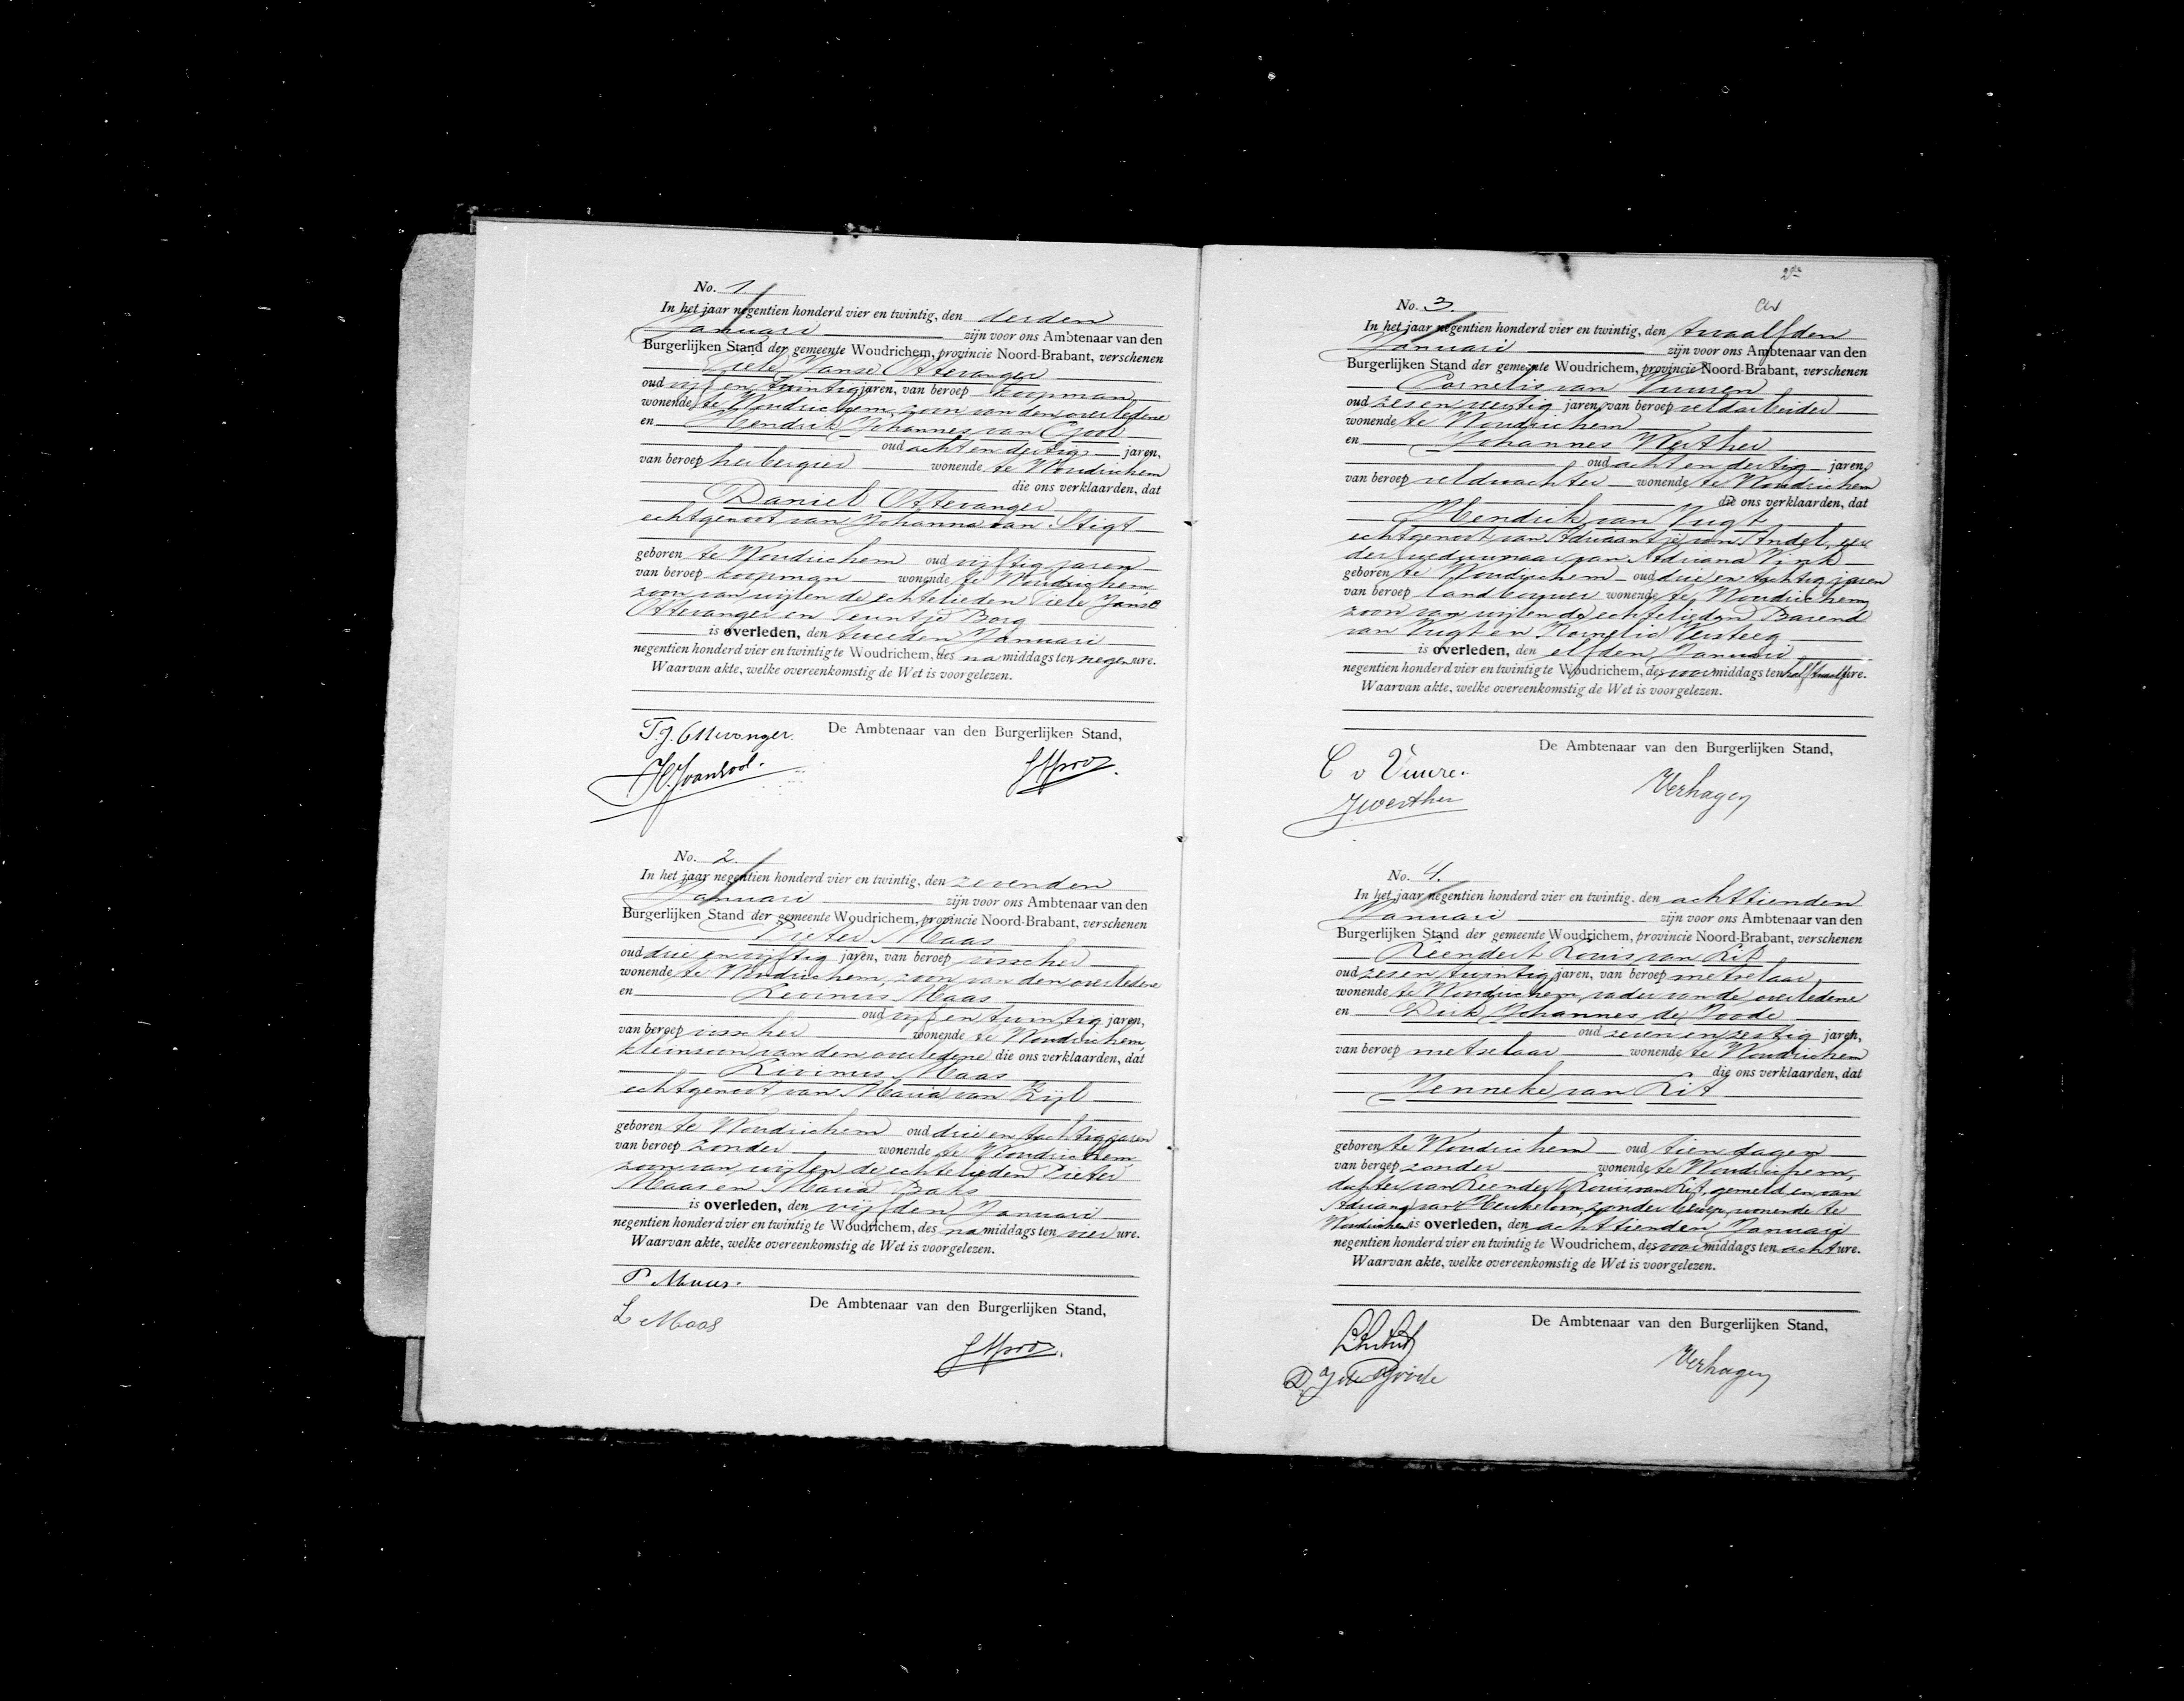 No. 1.
In het jaar negentien honderd vier en twintig, den derden
Januari zijn voor ons Ambtenaar van den
Burgerlijken Stand der gemeente Woudrichem, provincie Noord-Brabant, verschenen
Tiele Janse Ottevanger
oud vijf en twintig jaren, van beroep koopman
wonende te Woudrichem, zoon van den overledene
en Hendrik Johannes van
oud acht en dertig jaren,
van beroep herbergier wonende te Woudrichem
die ons verklaarden, dat
Daniel Ottevanger
echtgenoot van Johanna van Stigt
geboren te Woudrichem oud vijftig jaren
van beroep koopman wonende te Woudrichem
zoon van wijlen de echtelieden Tiele Janse
Ottevanger en Teuntje Borg
is overleden, den tweeden Januari
negentien honderd vier en twintig te Woudrichem, des namiddags ten negen ure.
Waarvan akte, welke overeenkomstig de Wet is voorgelezen.
De Ambtenaar van den Burgerlijken Stand,
T. J. Ottevanger.
No. 2.
In het jaar negentien honderd vier en twintig, den zevenden
Januari zijn voor ons Ambtenaar van den
Burgerlijken Stand der gemeente Woudrichem, provincie Noord-Brabant, verschenen
Pieter Maas
oud drie en vijftig jaren, van beroep visscher
wonende te Woudrichem, zoon van den overledene
en Levinus Maas
oud vijf en twintig jaren,
van beroep visscher wonende te Woudrichem,
kleinzoon van den overledene die ons verklaarden, dat
Livinus Maas
echtgenoot van Maria van Zijl
geboren te Woudrichem oud drie en tachtig jaren
van beroep zonder wonende te Woudrichem
zoon van wijlen de echtelieden Pieter
Maas en Maria Baks
is overleden, den vijfden Januari
negentien honderd vier en twintig te Woudrichem, des namiddags ten vier ure.
Waarvan akte, welke overeenkomstig de Wet is voorgelezen.
P Maas.
De Ambtenaar van den Burgerlijken Stand,
L Maas
No. 3.
In het jaar negentien honderd vier en twintig, den twaalfden
Januari zijn voor ons Ambtenaar van den
Burgerlijken Stand der gemeente Woudrichem, provincie Noord-Brabant, verschenen
Cornelis van Vuuren
oud zes en veertig jaren, van beroep veldarbeider
wonende te Woudrichem
en Johannes Werther
oud acht en dertig jaren,
van beroep veldwachter wonende te Woudrichem
die ons verklaarden, dat
Hendrik van Vugt
echtgenoot van Adriaantje van Andel, eer
der weduwnaar van Adriana Vink
geboren te Woudrichem oud drie en tachtig jaren
van beroep landbouwer wonende te Woudrichem
zoon van wijlen de echtelieden Barend
van Vugt en Kornelia Versteeg
is overleden, den elfden Januari
negentien honderd vier en twintig te Woudrichem, des voormiddags ten half twaalf ure.
Waarvan akte, welke overeenkomstig de Wet is voorgelezen.
De Ambtenaar van den Burgerlijken Stand,
C v Vuure.
J Werther
Verhagen
No. 4.
In het jaar negentien honderd vier en twintig, den achttienden
Januari zijn voor ons Ambtenaar van den
Burgerlijken Stand der gemeente Woudrichem, provincie Noord-Brabant, verschenen
Leendert Louis van Lit
oud zes en twintig jaren, van beroep metselaar
wonende te Woudrichem, vader van de overledene
en Dirk Johannes de
oud zeven en zestig jaren,
van beroep metselaar wonende te Woudrichem
die ons verklaarden, dat
Jenneke van Lit
geboren te Woudrichem oud tien dagen
van beroep zonder wonende te Woudrichem,
dochter van Leendert Louis van Lit, gemeld en van
Adriana van Heukelom, zonder beroep, wonende te
Woudrichem is overleden, den achttienden Januari
negentien honderd vier en twintig te Woudrichem, des voormiddags ten acht ure.
Waarvan akte, welke overeenkomstig de Wet is voorgelezen.
De Ambtenaar van den Burgerlijken Stand,
Verhagen